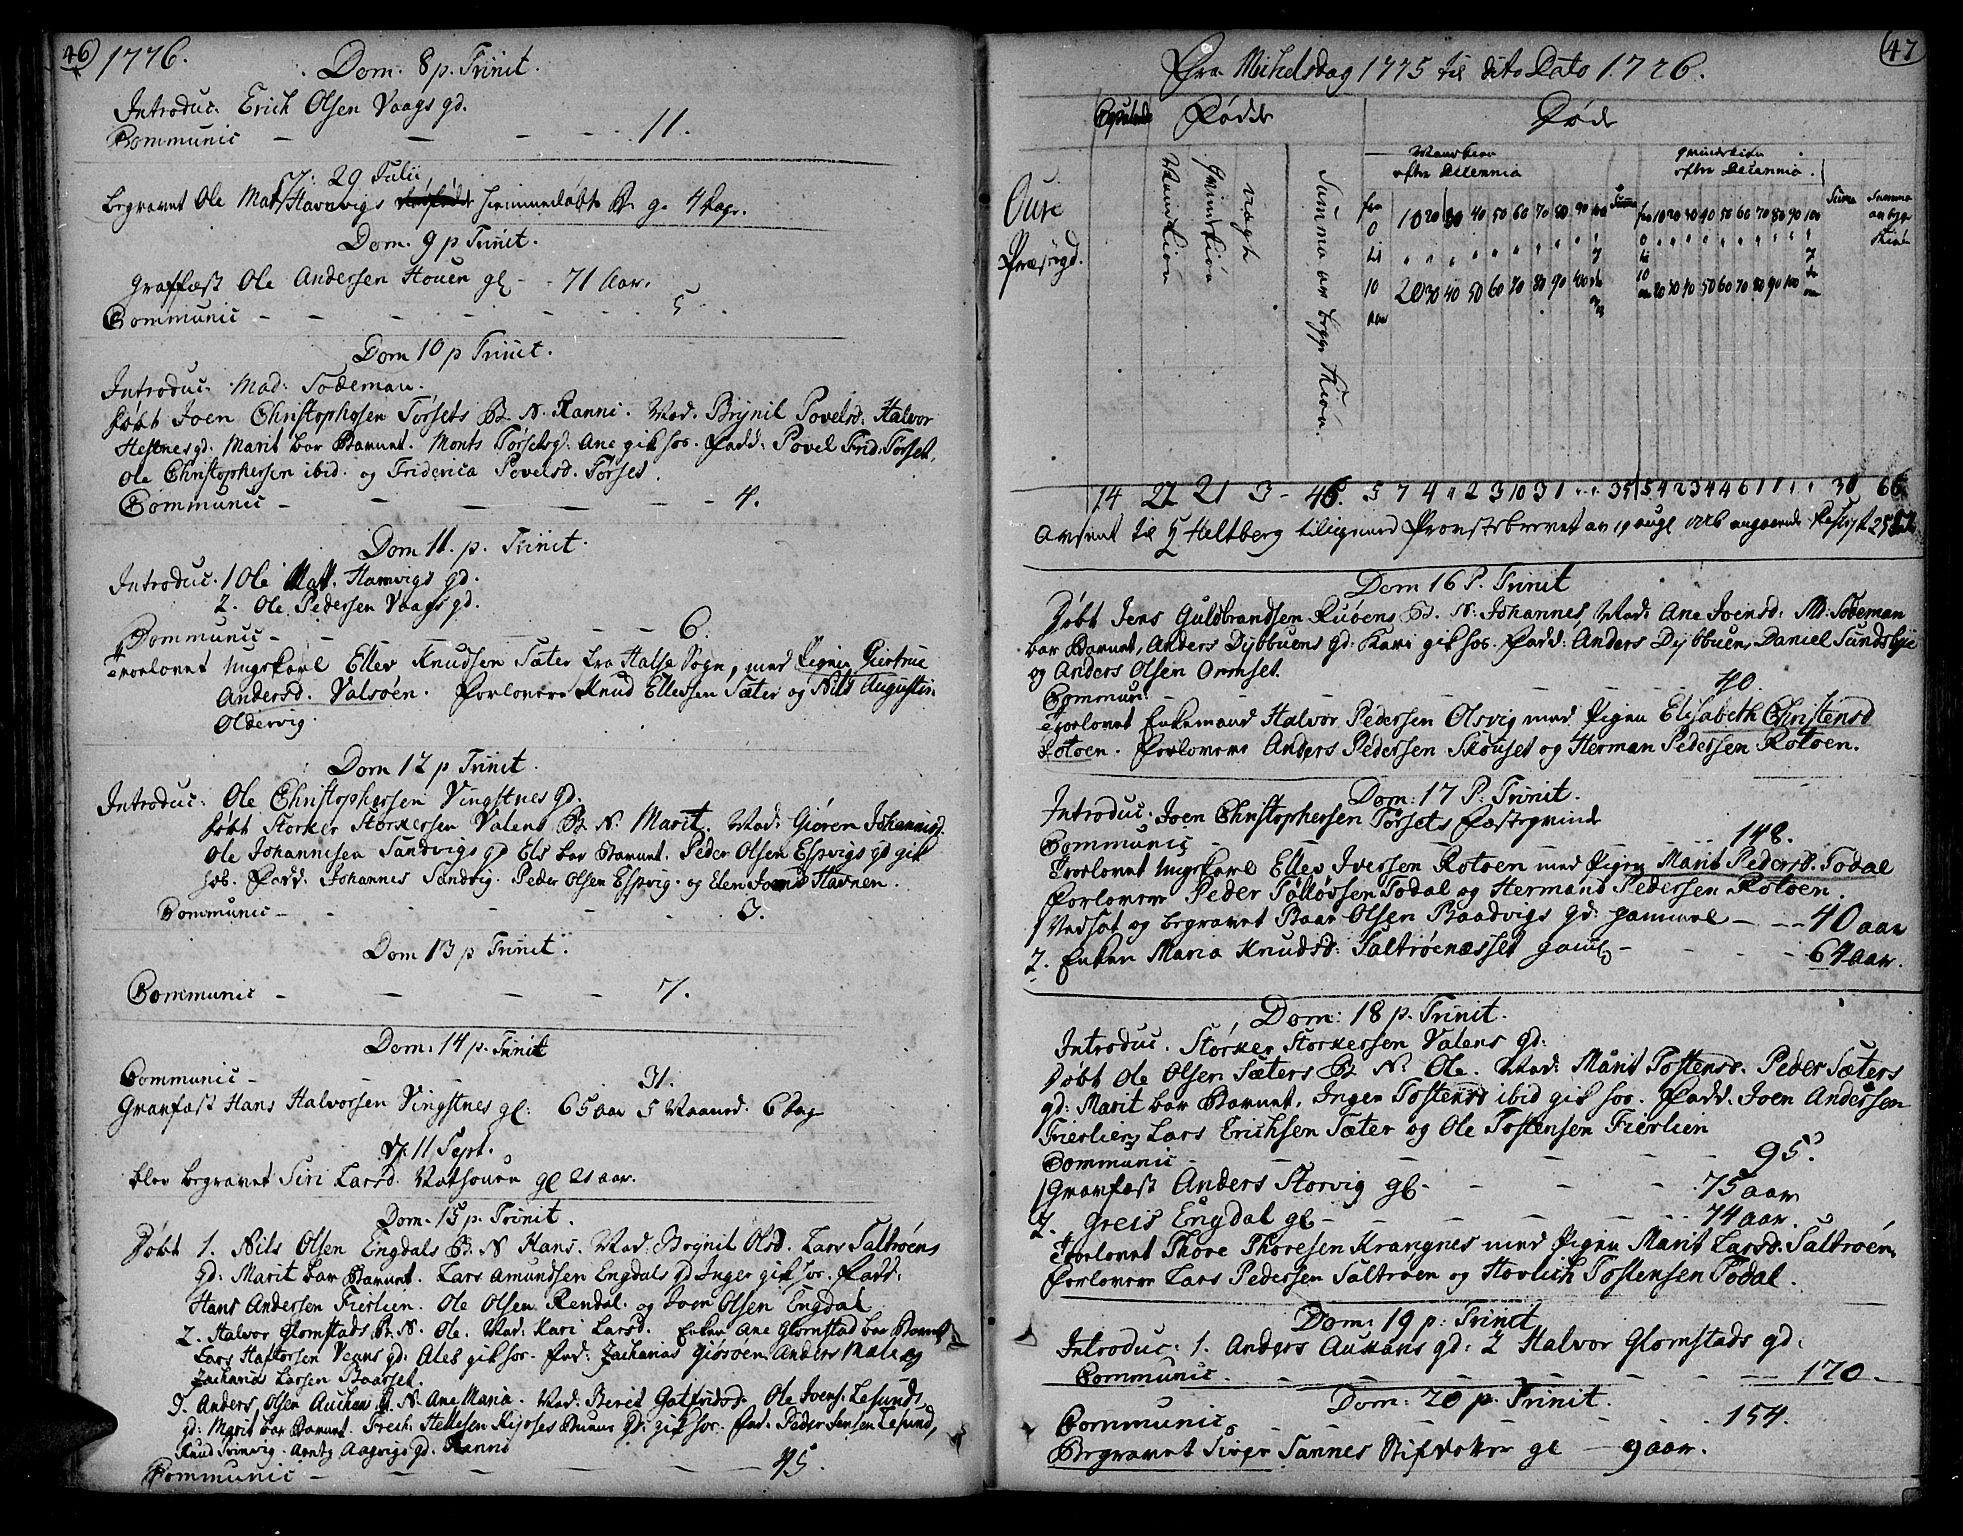 46) 1776.
Dom. 8 p. Trinit.
Introduc. Erich Olsen Vaags gd.
Communic - - - - 11.
29 Julii
begravet Ole Mat: Havnvigs hiemmedøbt B. g. 4 dage.
Dom. 9 p Trinit.
Graffæst Ole Andersen Houen gl - - 71 Aar.
Communic - - - - - 5
Dom 10 p Trinit.
Introduc. Mad: Todeman.
Døbt Joen Christophersen Torsets B. N. Ranni. Mod. Brynil Povelsd. Halvor
Hestnes gd. Marit bar Barnet. Monts Torsets gd. Ane gik hos. Fadd: Povel Frid: Torset,
Ole Christophersen ibid. og Friderica Povelsd. Torset.
Communic - - - - 4.
Dom 11. p. Trinit.
Introduc. 1 Ole Mat. Hamvigs gd.
2. Ole Pedersen Vaags gd.
Communic - - - - 6.
Trorlovet Ungkarl Ellev Knudsen Sæter fra Halse Sogn, med Pigen Giertrue
Andersd. Valsøen. Forlovere Knud Ellefsen Sæter og Nils Augustin
Oldervig.
Dom 12 p Trinit.
Introduc: Ole Christophersen Vingstnes gd.
Døbt Storker Storkersen Valens B. N. Marit. Mod: Giøren Johannisd.
Ole Johannisen Sandvigs gd Els bar Barnet. Peder Olsen Espvigs gd gik
hos. Fadd. Johannes Sandvig. Peder Olsen Espvig. og Elen Joensd Havnen.
Communic - - - - 3.
Dom 13 p Trinit.
Communic - - - - 7.
Dom. 14 p. Trinit
Communic - 31.
Gravfæst Hans Halvorsen Vingstnes gl: 65 aar 5 Maaned. 6 Dag
11 Sept.
blev begravet Siri Larsd. gl 21 aar.
Dom. 15 p. Trinit.
Døbt 1. Nils Olsen Engdals B. N Hans. Mod: Brynil Olsd. Lars Saltrøens
gd: Marit bar Barnet. Lars Amundsen Engdals gd Inger gik hos. Fadd:
Hans Andersen Fierlien. Ole Olsen Rendal. og Joen Olsen Engdal
2. Halvor Glomstads B. N. Ole. Mod: Kari Larsd. Enken Ane Glomstad bar Barnet
Lars Haftorsen gd: Ales gik hos. Fad: Zacharias Giøsøen Anders
Zacharias Larsen Baarset.
3. Anders Olsen Aukan B. N. Ane Maria. Mod: Berit Gotfridsd. Ole Joens: Lesunds
gd: Marit bar Barnet. gd: gik hos. Fad: Peder Jensen Lesund,
Knud Aagvigs gd: Ranno
Communic - - - - 45.
47
Fra Mikelsdag 1775 til dito Dato 1776.
Copulerede Fødde Døde
Mandkion efter Decennia
Qvindekion efter Decennia.
Oure
Præstegd.
Mandkion Qvindkion uægte Summa av begge Kiøn.
fra 0 til 10 aar 10 20 30 40 50 60 70 80 90 100 Summa
20 30 40 50 60 70 80 90 100
fra 0 til 10 aar 10 20 30 40 50 60 70 80 90 100 Suma
20 30 40 50 60 70 80 90 100
Summa av begge Kiøn
14 21 3 - 5 7 4 2 3 10 3 1 35 5 4 2 3 4 4 6 1 1 30
til Heltberg tilligemed Provstebrevet av 19 Augl 1776 angaaende
Dom 16 P. Trinit
Døbt Jens Guldbrandsen Ruøens B. N: Johannes, Mod: Ane Joensd: Md: Todeman
bar Barnet, Anders Dybbuens gd: Kari gik hos. Fadd: Anders Dybbuen, Daniel Sundsbye
og Anders Olsen Ormset.
Commun: - - - - 40
Trorlovet Enkemand Halvor Pedersen Olsvig med Pigen Elisabeth Christensd
Rotøen. Forlovere Anders Pedersen Skouset og Herman Pedersen Rotoen.
Dom: 17 P: Trinit.
Introduc. Joen Christophersen Torsets Fæsteqvinde
Communic - - - - 148.
Trorlovet Ungkarl Ellev Iversen Rotoen med Pigen Marit Pedersd. Todal
Forlovere Peder Tollovsen Todal og Hermand Pedersen Rotoen.
1 Udsat og begravet Baar Olsen Baadvigs gd: gammel - - - 40 aar
2. Enken Maria Knudsd: Saltrøenæsset gaml - - - 64 aar.
Dom: 18 p. Trinit.
Introduc. Storker Storkersen Valens gd:
Døbt Ole Olsen Sæters B. N: Ole. Mod: Marit Tostensd. Peder Sæters
gd: Marit bar Barnet. Ingen Tostensd ibid gik hos. Fadd. Joen Andersen
Fierlien, Lars Erichsen Sæter og Ole Tostensen Fierlien
Communic - - - - 95.
1 Gravfæst Anders Storvig gl - - - 75 aar
2. Greis Engdal gl - - - 74 aar.
Trorlovet Thore Thoresen Krangnes med Pigen Marit Larsd: Saltrøen.
Forlovere Lars Pedersen Saltrøen og Hovlich Tostensen Todal.
Dom. 19 p: Trinit
Introduc: 1. Anders Aukans gd: 2 Halvor Glomstads gd:
Communic. - - - - 170.
Dom: 20 p. Trinit.
Communic - - - - 154.
Begravet Siver Sannes Stifdatter gl - 9 aar.